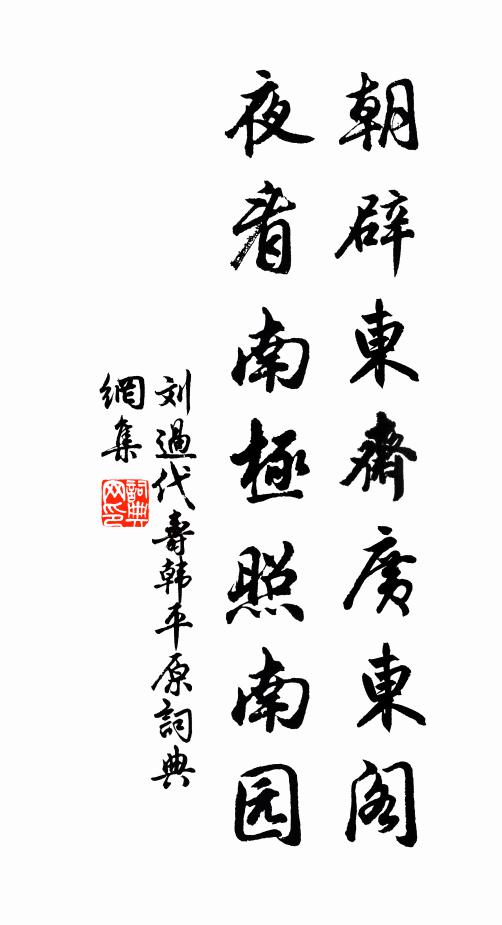 朝辟東齋廣東阁
夜看南極照南园
刘過代壽韩平原詞典
網集
詞典
网印